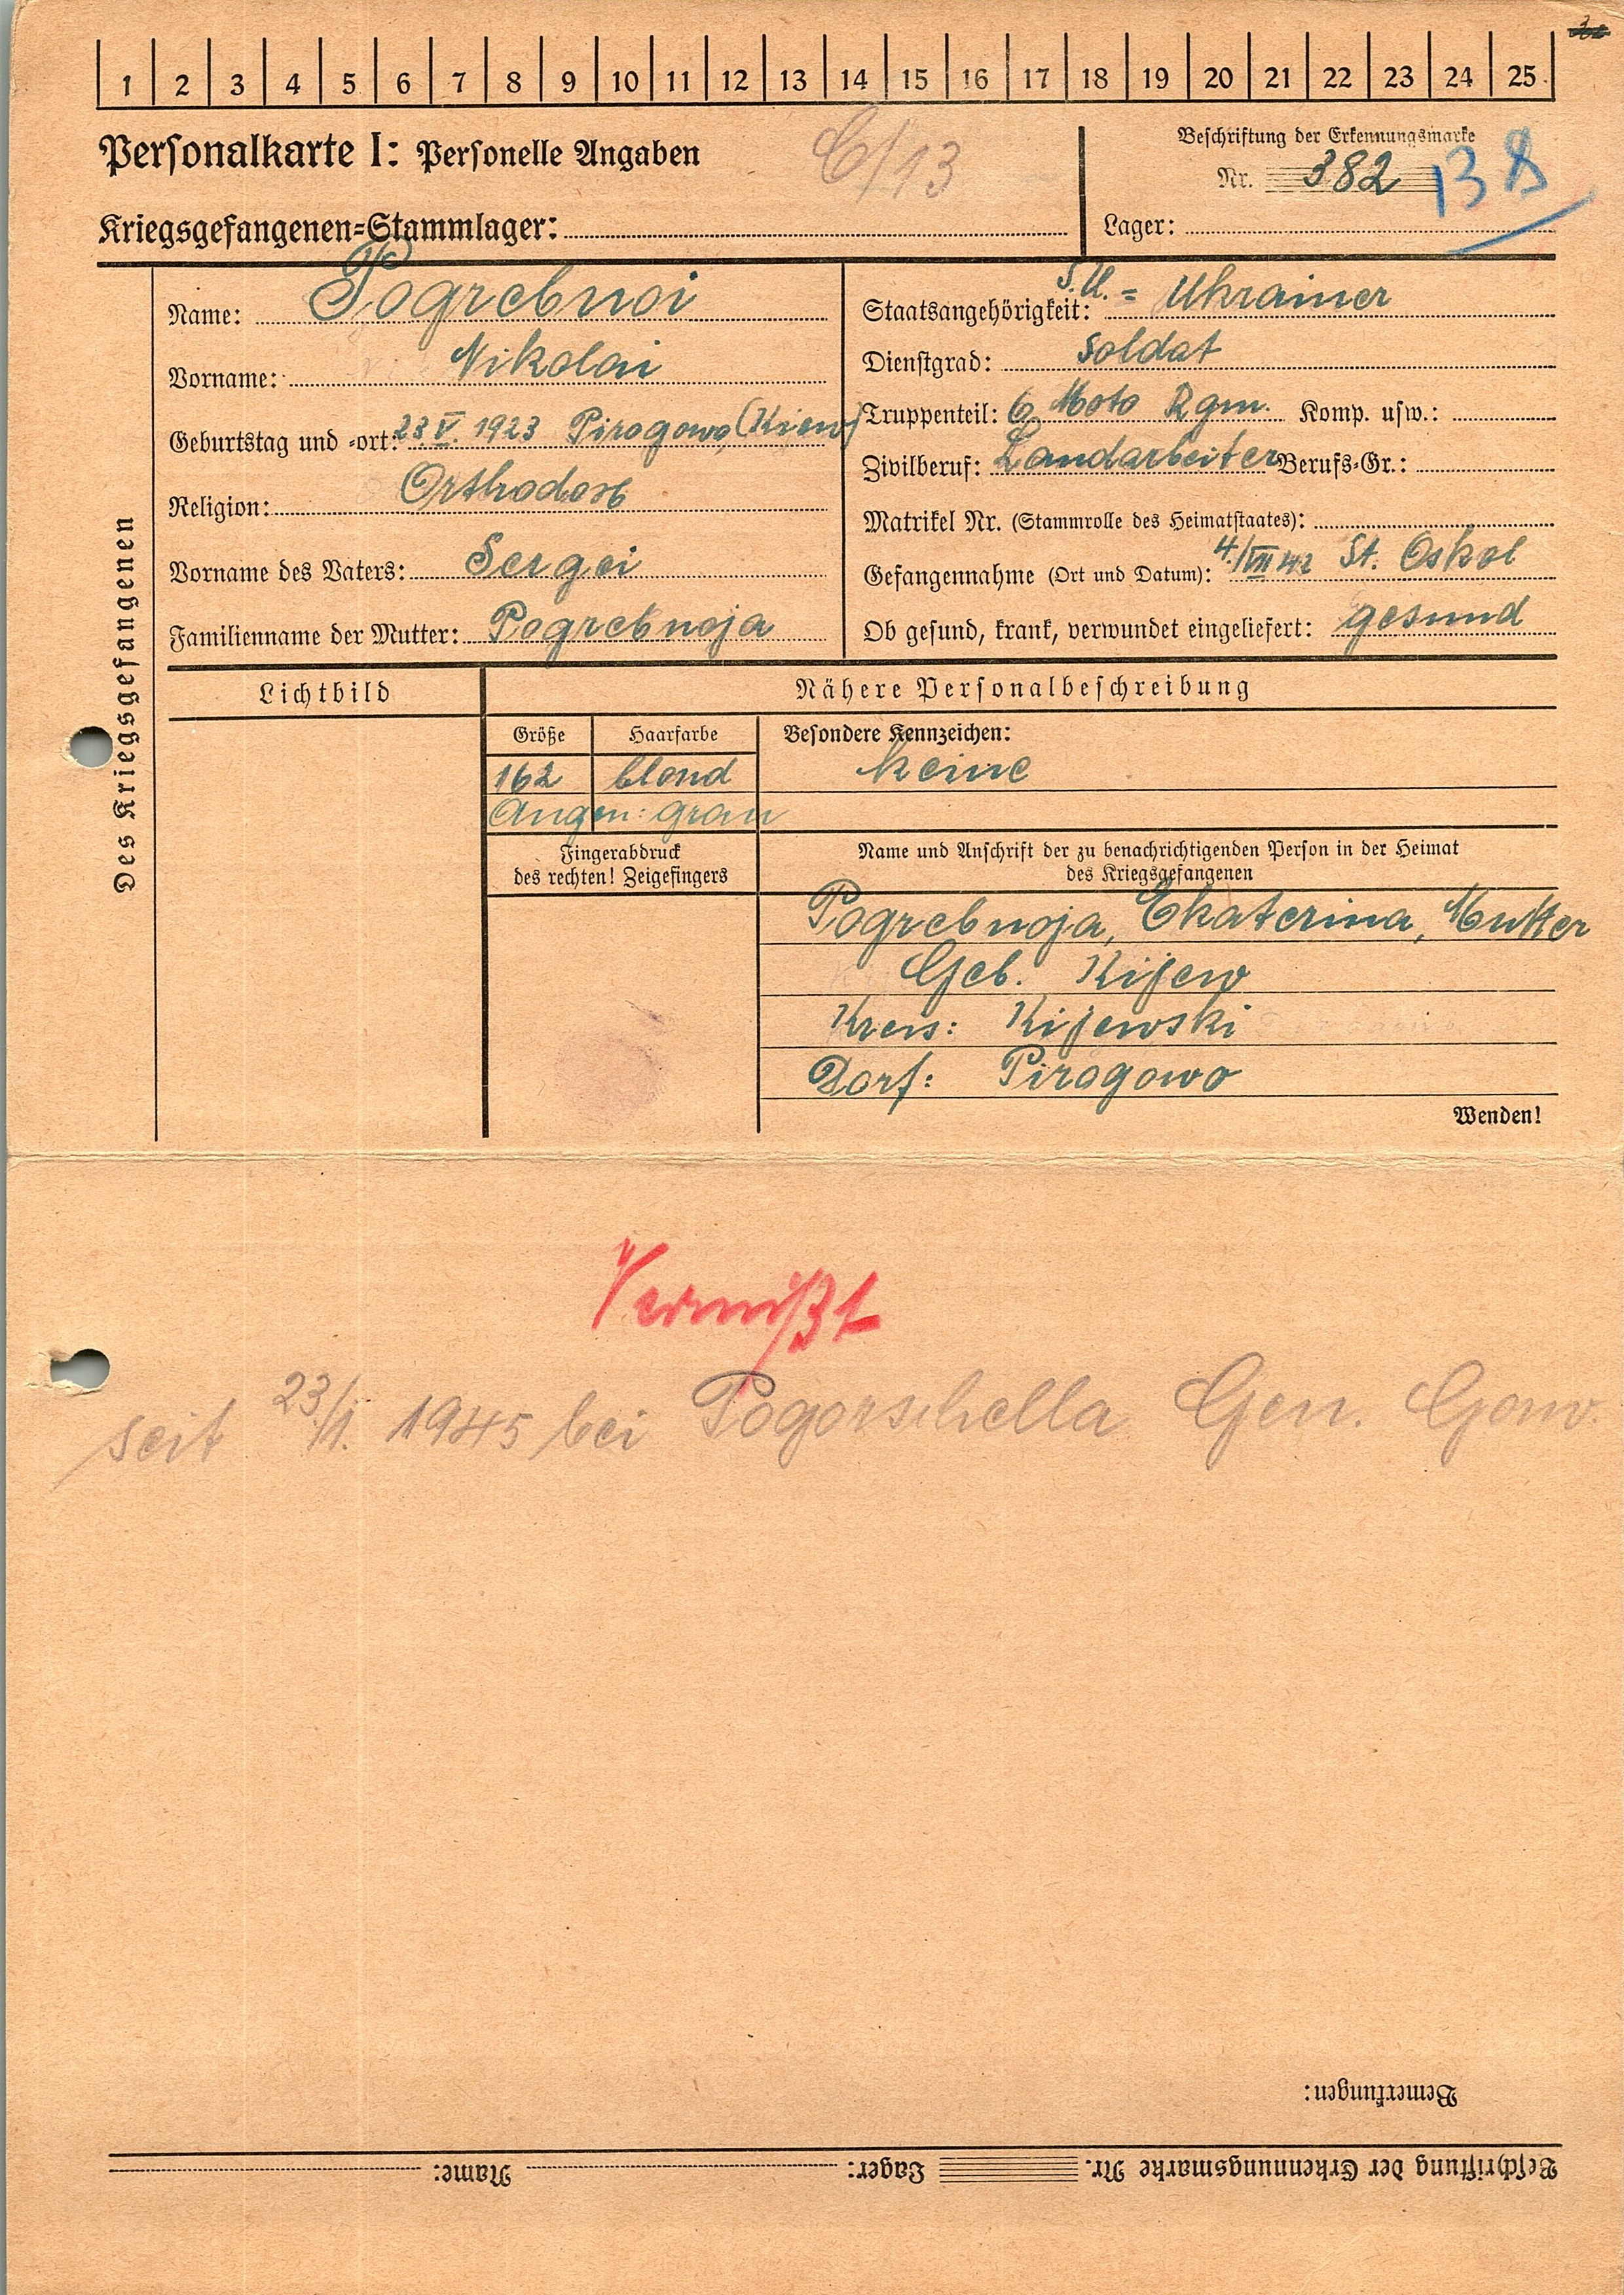 1 2 3 4 5 6 7 8 9 10 11 12 13 14 15 16 17 18 19 20 21 22 23 24 25
Personalkarte I: Personelle Angaben
C/13
Beschriftung der Erkennungsmarke
Nr. 382
138
Kriegsgefangenen=Stammlager:
Lager:
Des Kriegsgefangenen
Name: Pogrebnoi
Vorname: Nikolai
Geburtstag und =ort: 23.V. 1923 Pirogowo, (Kiew)
Religion: Orthodox
Vorname des Vaters: Sergei
Familienname der Mutter: Pogrebnoja
Staatsangehörigkeit: S.U. = Ukrainer
Dienstgrad: Soldat
Truppenteil: 6 Moto Rgm. Komp. usw.:
Zivilberuf: Landarbeiter Berufs=Gr.:
Matrikel Nr. (Stammrolle des Heimatstaates):
Gefangennahme (Ort und Datum): 4./VII 42 St. Oskol
Ob gesund, krank, verwundet eingeliefert: gesund
Lichtbild
Nähere Personalbeschreibung
Größe Haarfarbe
162 blond
Augen: grau
Besondere Kennzeichen:
keine
Fingerabdruck
des rechten! Zeigefingers
Name und Anschrift der zu benachrichtigenden Person in der Heimat
des Kriegsgefangenen
Pogrebnoja, Ekaterina, Mutter
Geb. Kijew
Kreis: Kijewski
Dorf: Pirogowo
Wenden!
Vermißt
seit 23./1. 1945 bei Pogorschella Gen. Gouv.
Bemerkungen:
Beschriftung der Erkennungsmarke Nr. Lager: Name: